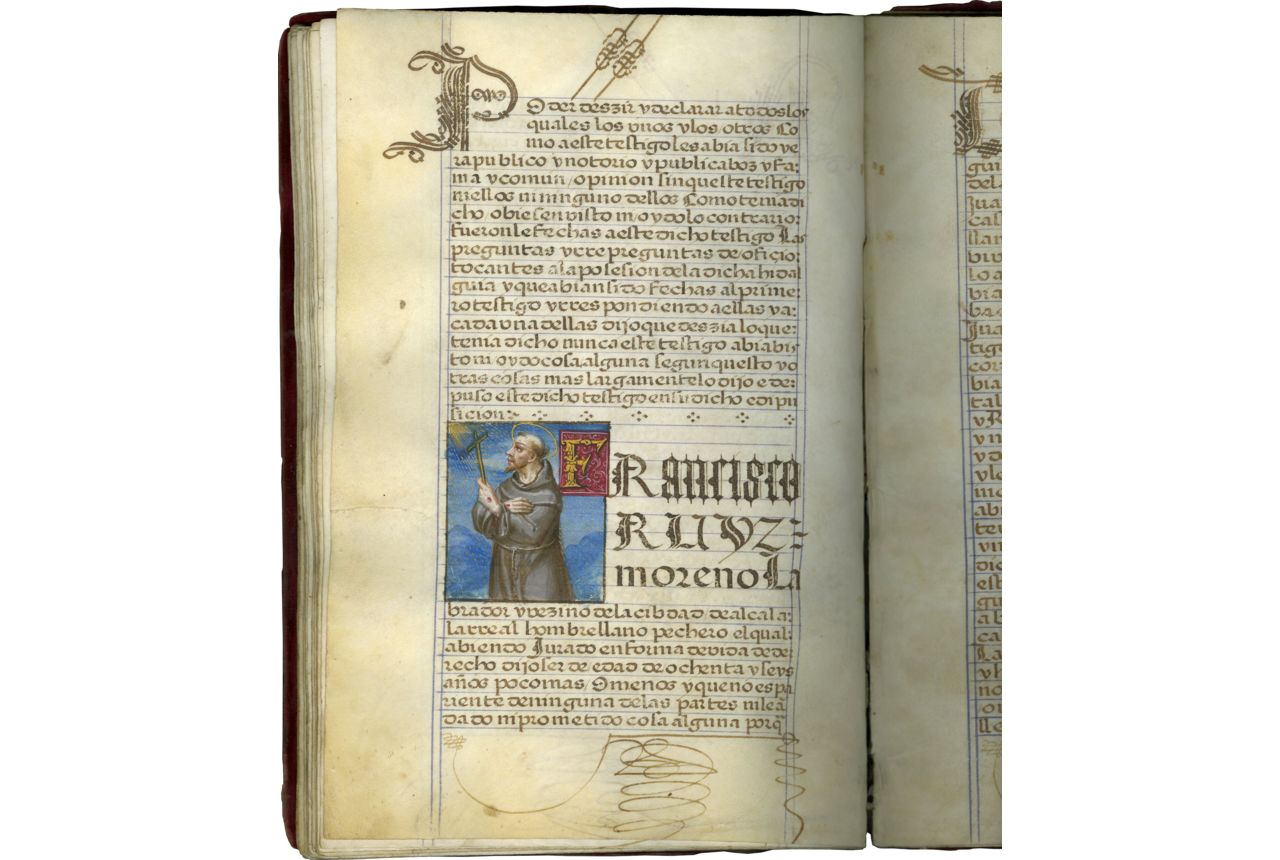 Poder deszir y declarar a todos los
quales los vnos y los otros Co
mo a este testigo les abia sido ve
ra publico y notorio y publica boz y fa:
ma y comun opinion sin que este testigo
ni ellos ni ninguno dellos Como tenia di
cho obiesen bisto ni oydo lo contrario:
fueronle fechas a este dicho testigo Las
preguntas y rrepreguntas de ofiçio:
tocantes a la posesion de la dicha hidal
guia y que abian sido fechas al prime:
ro testigo y rrespondiendo a ellas y a
cada vna dellas dijo que deszia lo que:
tenia dicho nunca este testigo abia bis
to ni oydo cosa alguna segun questo y o
tras cosas mas largamente lo dijo e de:
puso este dicho testigo en su dicho e dipu
sicion
FRancisco
RUYZ=
moreno La
brador y vezino de la cibdad de alcala:
la rreal hombre llano pechero el qual:
abiendo Jurado en forma devida de de:
recho dijo ser de edad de ochenta y seys
años poco mas / O menos y que no es pa
riente de ninguna de las partes ni le an
dado ni prometido cosa alguna porq
gui
de la
Jua
cas
llan
biv
lo a
bia
ba
Jua
tig
cor
bia
tal
y R
y n
y d
y lo
mo
abi
ten
vi
dic
est
gu
ab
ca
La
y h
no
o
lle